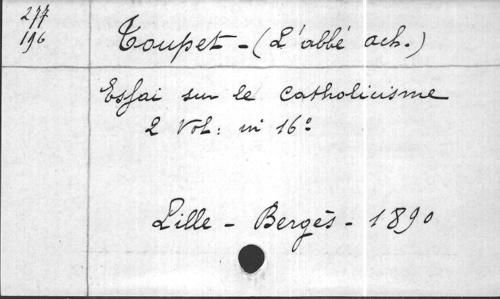 277
196
Toupet - (L'abbé ach.)
Essai sur le Catholicisme
2 Vol: in 16°
Lille - Bergès - 1890